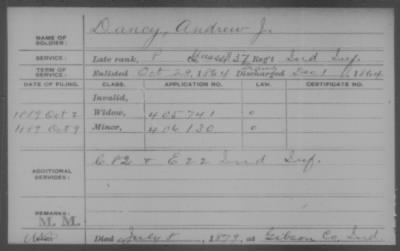 NAME OF SOLDIER: Dancy, Andrew J.
SERVICE: Late rank, P Unassd 37 Reg't Ind Inf.
TERM OF SERVICE: Enlisted Oct 29, 1864 Discharged Dec 1, 1864
DATE OF FILING. CLASS. APPLICATION NO. LAW. CERTIFICATE NO.
Invalid,
1889 Oct 2 Widow, 405741 o
1889 Oct 9 Minor, 406130 o
ADDITIONAL SERVICES: C 82 & E 22 Ind Inf.
REMARKS:
M. M.
Died July 8, 1879, at Gibson Co, Ind